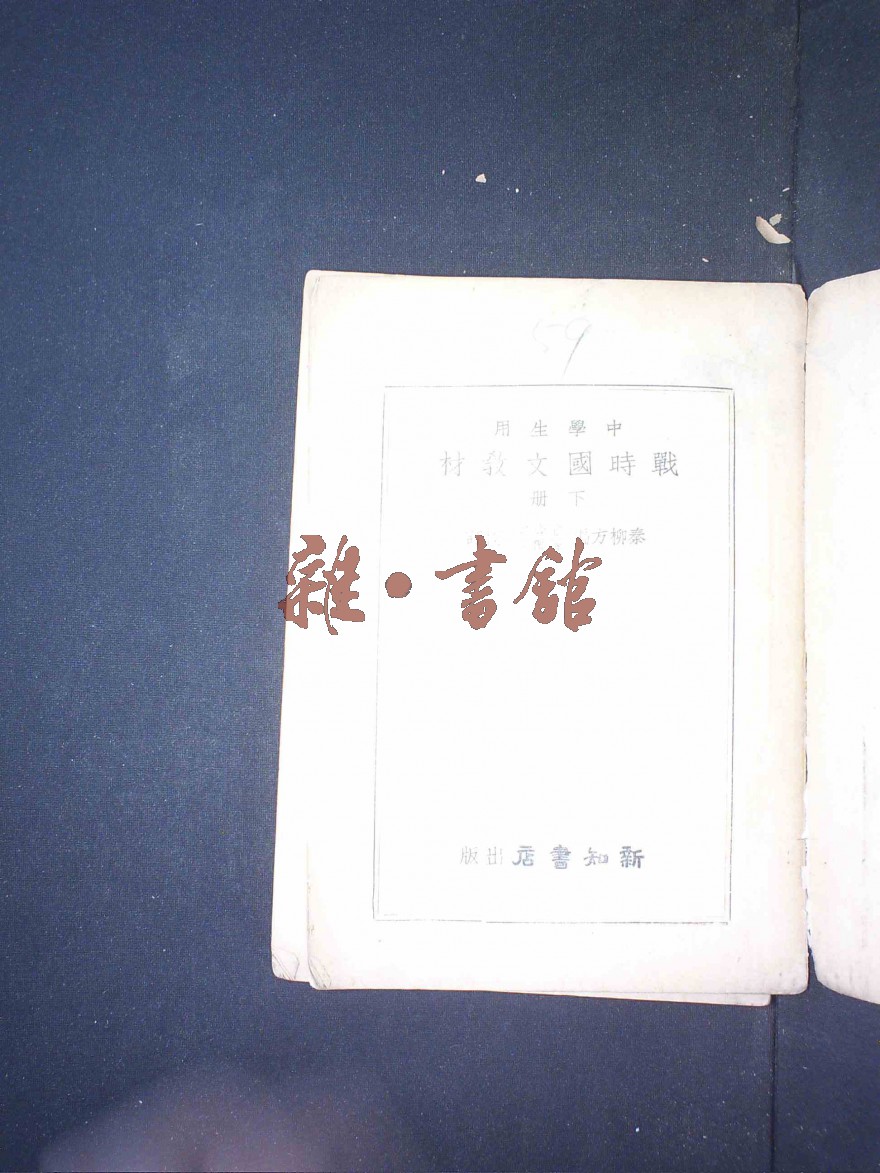 59
中學生用
戰時國文教材
下册
秦柳方
雜·書館
新知書店出版